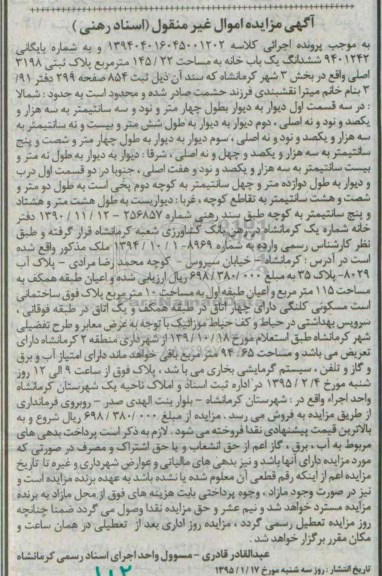 آگهی مزایده اموال غیر منقول (اسناد رهنی)
به موجب پرونده اجرائی کلاسه ۱۳۹۴۰۴۰۱۶۰۴۵۰۰۱۲۰۲ و به شماره بایگانی
۹۴۰۱۲۴۲ ششدانگ یک باب خانه به مساحت ۱۴۵/۲۲ مترمربع پلاک ثبتی ۳۱۹۸
اصلی واقع در بخش ۳ شهر کرمانشاه که سند آن ذیل ثبت ۸۵۴ صفحه ۲۹۹ دفتر ۹۱/
۳ بنام خانم میترا نقشبندی فرزند حشمت صادر شده و محدود است به حدود: شمالا
: در سه قسمت اول دیوار به دیوار بطول چهار متر و نود و سه سانتیمتر به سه هزار و
یکصد و نود و نه اصلی ، دوم دیوار به دیوار به طول شش متر و بیست و نه سانتیمتر به
سه هزار و یکصد و نود و نه اصلی ، سوم دیوار به دیوار به طول چهار متر و شصت و پنج
سانتیمتر به سه هزار و یکصد و چهل و نه اصلی ، شرقا : دیوار به دیوار به طول نه متر و
بیست سانتیمتر به سه هزار و یکصد و نود و هفت اصلی ، جنوبا: در دو قسمت اول درب
و دیوار به طول دوازده متر و چهل سانتیمتر به کوچه دوم پخی است به طول دو متر و
شصت و هشت سانتیمتر به تقاطع کوچه ، غربا : دیواریست به طول هشت متر و هشتاد
و پنج سانتیمتر به کوچه طبق سند رهنی شماره ۲۵۶۸۵۷ – ۱۳۹۰/۱۱/۱۲ دفتر
خانه شماره یک کرمانشاه در رهن بانک کشاورزی شعبه کرمانشاه قرار گرفته و طبق
نظر کارشناس رسمی وارده به شماره ۸۹۶۹– ۱۳۹۴/۱۰/۱ ملک مذکور واقع شده
است در آدرس : کرمانشاه – خیابان سیروس کوچه محمد رضا مرادی – پلاک آب
۸۰۲۹– پلاک ۳۵ به مبلغ ۶۹۸/۳۸۰/۰۰۰ ریال ارزیابی شده و اعیان طبقه همکف به
مساحت ۱۱۵ متر مربع و اعیان طبقه اول به مساحت ۱۰ متر مربع پلاک فوق ساختمانی
است مسکونی کلنگی دارای چهار اتاق در طبقه همکف و یک اتاق در طبقه فوقانی ،
سرویس بهداشتی در حیاط و کف حیاط موزائیک با توجه به عرض معابر و طرح تفصیلی
شهر کرمانشاه طبق استعلام مورخ ۱۳۹/۱۰/۱۸ از شهرداری منطقه ۳ کرمانشاه دارای
تعریض می باشد و مساحت ۹۴/۶۵ متر مربع باقی خواهد ماند دارای امتیاز آب و برق
و گاز و تلفن ، سیستم گرمایشی بخاری می باشد ، پلاک فوق از ساعت ۹ الی ۱۲ روز
شنبه مورخ ۱۳۹۵/۲/۴ در اداره ثبت اسناد و املاک ناحیه یک شهرستان کرمانشاه
واحد اجراء واقع در : شهرستان کرمانشاه – بلوار بنت الهدی صدر – روبروی فرمانداری
از طریق مزایده به فروش می رسد . مزایده از مبلغ ۶۹۸/۳۸۰/۰۰۰ ریال شروع و به
بالاترین قیمت پیشنهادی نقدا فروخته می شود . لازم به ذکر است پرداخت بدهی های
مربوط به آب ، برق ، گاز اعم از حق انشعاب و یا حق اشتراک و مصرف در صورتی که
مورد مزایده دارای آنها باشد و نیز بدهی های مالیاتی و عوارض شهرداری و غیره تا تاریخ
مزایده اعم از اینکه رقم قطعی آن معلوم شده یا نشده باشد به عهده برنده مزایده است و
نیز در صورت وجود مازاد ، وجوه پرداختی بابت هزینه های فوق از محل مازاد به برنده
مزایده مسترد خواهد شد و نیم عشر و حق مزایده نقدا وصول می گردد ضمنا چنانچه
روز مزایده تعطیل رسمی گردد ، مزایده روز اداری بعد از تعطیلی در همان ساعت و
مکان مقرر برگزار خواهد شد.
عبدالقادر قادری – مسوول واحد اجرای اسناد رسمی کرمانشاه
تاریخ انتشار : روز سه شنبه مورخ ۱۳۹۵/۱/۱۷
۱۱۲